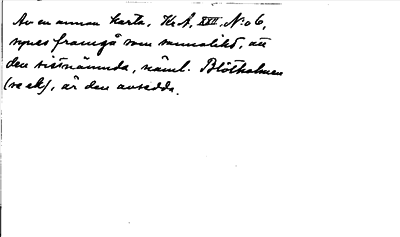 Av en annan karta, Kr. A, XXII, N:o 6,
synes framgå som sannolikt, att
den sistnämnda, näml. Blötholmen
(se ek), är den avsedda.